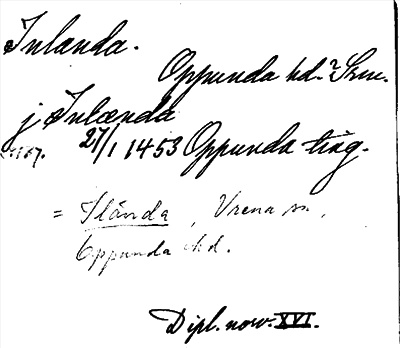 Inlænda.
Oppunda hd.? Srm.
j Inlænda
27/1 1453 Oppunda ting.
= Ilända, Vrena sn,
Oppunda hd.
Dipl. norv. XVI.